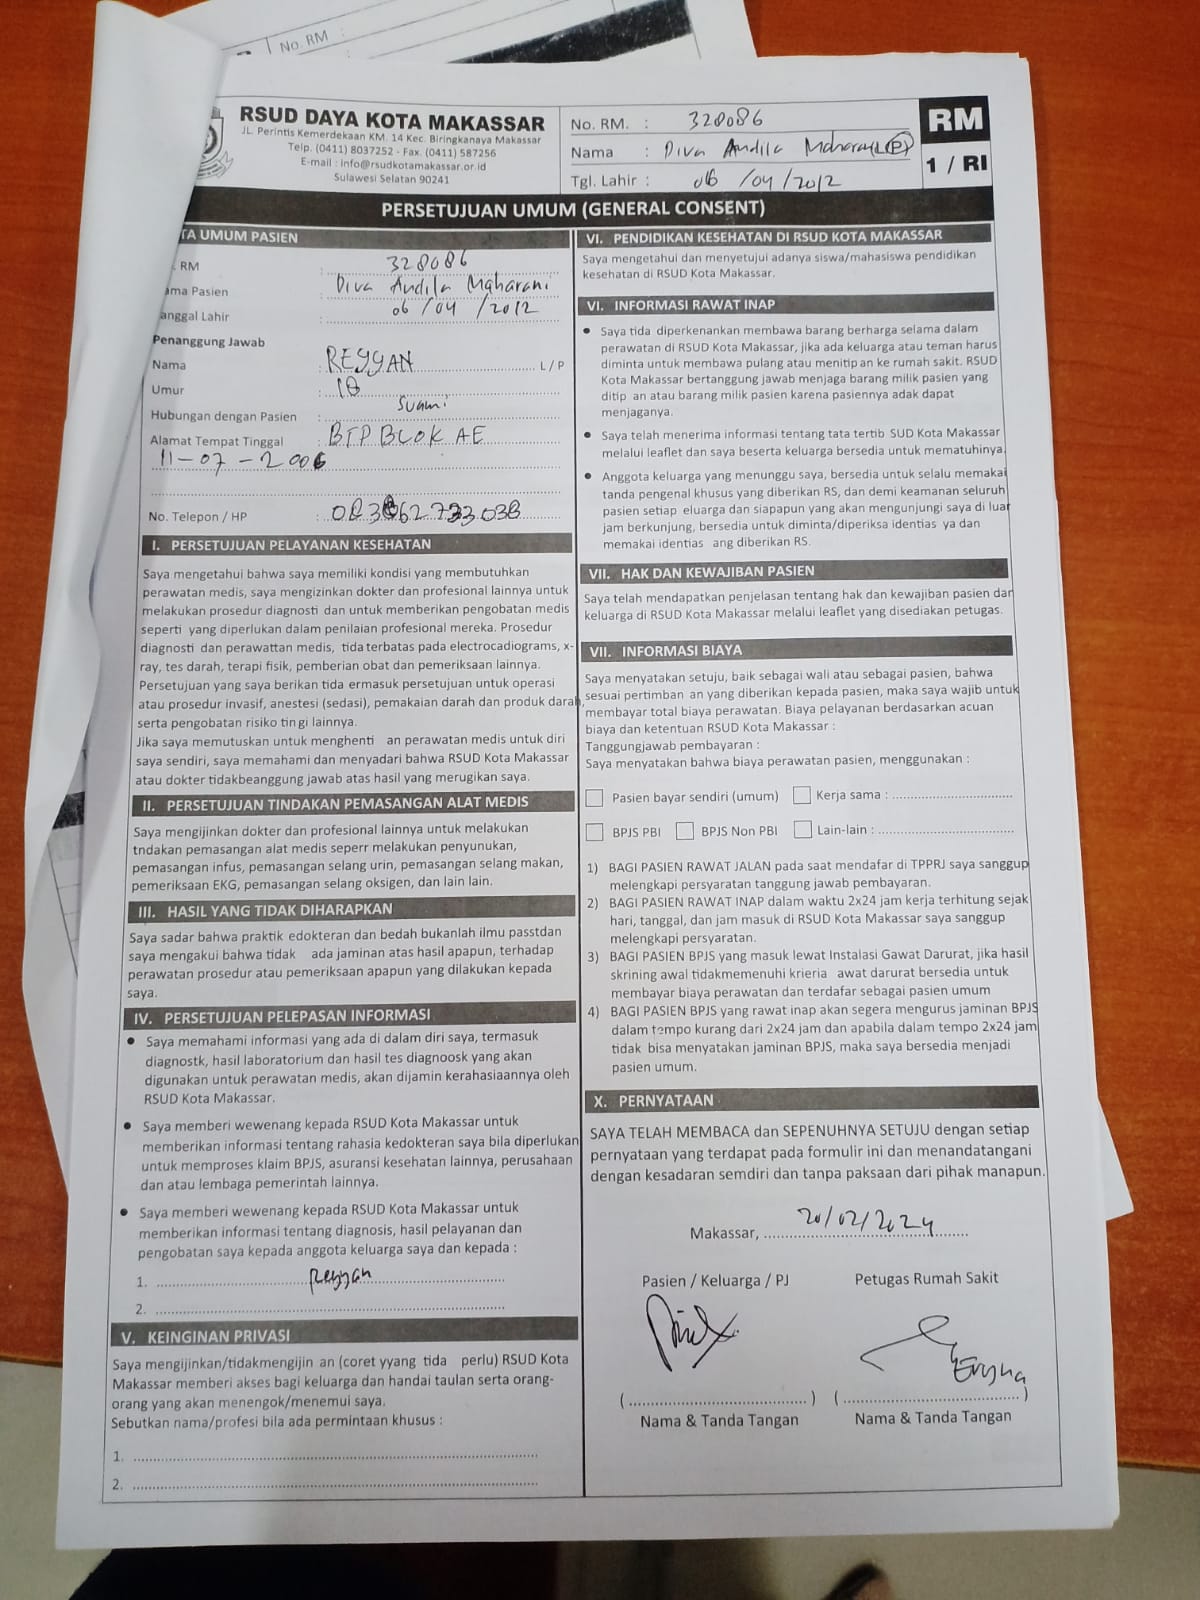 No. RM :
RSUD DAYA KOTA MAKASSAR
JL. Perintis Kemerdekaan KM. 14 Kec. Biringkanaya Makassar
Telp. (0411) 8037252 - Fax. (0411) 587256
E-mail : info@rsudkotamakassar.or.id
Sulawesi Selatan 90241
No. RM. : 328086
Nama : Diva Andila Maharani L P
Tgl. Lahir : 06 /04 /2012
RM
1 / RI
PERSETUJUAN UMUM (GENERAL CONSENT)
TA UMUM PASIEN
. RM : 328086
ama Pasien : Diva Andila Maharani
anggal Lahir : 06 /04 /2012
Penanggung Jawab
Nama : REYYAN L / P
Umur : 18
Hubungan dengan Pasien : Suami
Alamat Tempat Tinggal : BTP BLOK AE
11-07-2006
No. Telepon / HP :
I. PERSETUJUAN PELAYANAN KESEHATAN
Saya mengetahui bahwa saya memiliki kondisi yang membutuhkan
perawatan medis, saya mengizinkan dokter dan profesional lainnya untuk
melakukan prosedur diagnosti dan untuk memberikan pengobatan medis
seperti yang diperlukan dalam penilaian profesional mereka. Prosedur
diagnosti dan perawattan medis, tida terbatas pada electrocadiograms, x-
ray, tes darah, terapi fisik, pemberian obat dan pemeriksaan lainnya.
Persetujuan yang saya berikan tida ermasuk persetujuan untuk operasi
atau prosedur invasif, anestesi (sedasi), pemakaian darah dan produk darah,
serta pengobatan risiko tin gi lainnya.
Jika saya memutuskan untuk menghenti an perawatan medis untuk diri
saya sendiri, saya memahami dan menyadari bahwa RSUD Kota Makassar
atau dokter tidakbeanggung jawab atas hasil yang merugikan saya.
II. PERSETUJUAN TINDAKAN PEMASANGAN ALAT MEDIS
Saya mengijinkan dokter dan profesional lainnya untuk melakukan
tndakan pemasangan alat medis seperr melakukan penyunukan,
pemasangan infus, pemasangan selang urin, pemasangan selang makan,
pemeriksaan EKG, pemasangan selang oksigen, dan lain lain.
III. HASIL YANG TIDAK DIHARAPKAN
Saya sadar bahwa praktik edokteran dan bedah bukanlah ilmu passtdan
saya mengakui bahwa tidak ada jaminan atas hasil apapun, terhadap
perawatan prosedur atau pemeriksaan apapun yang dilakukan kepada
saya.
IV. PERSETUJUAN PELEPASAN INFORMASI
● Saya memahami informasi yang ada di dalam diri saya, termasuk
diagnostk, hasil laboratorium dan hasil tes diagnoosk yang akan
digunakan untuk perawatan medis, akan dijamin kerahasiaannya oleh
RSUD Kota Makassar.
● Saya memberi wewenang kepada RSUD Kota Makassar untuk
memberikan informasi tentang rahasia kedokteran saya bila diperlukan
untuk memproses klaim BPJS, asuransi kesehatan lainnya, perusahaan
dan atau lembaga pemerintah lainnya.
● Saya memberi wewenang kepada RSUD Kota Makassar untuk
memberikan informasi tentang diagnosis, hasil pelayanan dan
pengobatan saya kepada anggota keluarga saya dan kepada :
1. Reyyan
2.
V. KEINGINAN PRIVASI
Saya mengijinkan/tidakmengijin an (coret yyang tida perlu) RSUD Kota
Makassar memberi akses bagi keluarga dan handai taulan serta orang-
orang yang akan menengok/menemui saya.
Sebutkan nama/profesi bila ada permintaan khusus :
1.
2.
VI. PENDIDIKAN KESEHATAN DI RSUD KOTA MAKASSAR
Saya mengetahui dan menyetujui adanya siswa/mahasiswa pendidikan
kesehatan di RSUD Kota Makassar.
VI. INFORMASI RAWAT INAP
● Saya tida diperkenankan membawa barang berharga selama dalam
perawatan di RSUD Kota Makassar, jika ada keluarga atau teman harus
diminta untuk membawa pulang atau menitip an ke rumah sakit. RSUD
Kota Makassar bertanggung jawab menjaga barang milik pasien yang
ditip an atau barang milik pasien karena pasiennya adak dapat
menjaganya.
● Saya telah menerima informasi tentang tata tertib SUD Kota Makassar
melalui leaflet dan saya beserta keluarga bersedia untuk mematuhinya.
● Anggota keluarga yang menunggu saya, bersedia untuk selalu memakai
tanda pengenal khusus yang diberikan RS, dan demi keamanan seluruh
pasien setiap eluarga dan siapapun yang akan mengunjungi saya di luar
jam berkunjung, bersedia untuk diminta/diperiksa identias ya dan
memakai identias ang diberikan RS.
VII. HAK DAN KEWAJIBAN PASIEN
Saya telah mendapatkan penjelasan tentang hak dan kewajiban pasien dan
keluarga di RSUD Kota Makassar melalui leaflet yang disediakan petugas.
VII. INFORMASI BIAYA
Saya menyatakan setuju, baik sebagai wali atau sebagai pasien, bahwa
sesuai pertimban an yang diberikan kepada pasien, maka saya wajib untuk
membayar total biaya perawatan. Biaya pelayanan berdasarkan acuan
biaya dan ketentuan RSUD Kota Makassar :
Tanggungjawab pembayaran :
Saya menyatakan bahwa biaya perawatan pasien, menggunakan :
Pasien bayar sendiri (umum) Kerja sama :
BPJS PBI BPJS Non PBI Lain-lain :
1) BAGI PASIEN RAWAT JALAN pada saat mendafar di TPPRJ saya sanggup
melengkapi persyaratan tanggung jawab pembayaran.
2) BAGI PASIEN RAWAT INAP dalam waktu 2x24 jam kerja terhitung sejak
hari, tanggal, dan jam masuk di RSUD Kota Makassar saya sanggup
melengkapi persyaratan.
3) BAGI PASIEN BPJS yang masuk lewat Instalasi Gawat Darurat, jika hasil
skrining awal tidakmemenuhi krieria awat darurat bersedia untuk
membayar biaya perawatan dan terdafar sebagai pasien umum
4) BAGI PASIEN BPJS yang rawat inap akan segera mengurus jaminan BPJS
dalam tempo kurang dari 2x24 jam dan apabila dalam tempo 2x24 jam
tidak bisa menyatakan jaminan BPJS, maka saya bersedia menjadi
pasien umum.
X. PERNYATAAN
SAYA TELAH MEMBACA dan SEPENUHNYA SETUJU dengan setiap
pernyataan yang terdapat pada formulir ini dan menandatangani
dengan kesadaran semdiri dan tanpa paksaan dari pihak manapun.
Makassar, 20/02/2024
Pasien / Keluarga / PJ Petugas Rumah Sakit
( ) ( )
Nama & Tanda Tangan Nama & Tanda Tangan